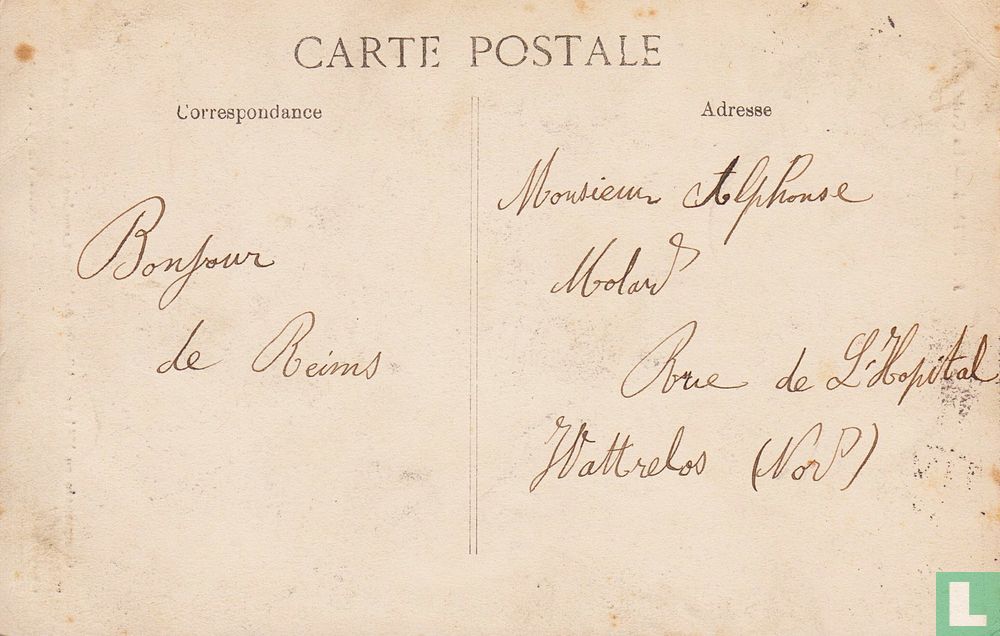 CARTE POSTALE
Correspondance
Bonjour
de Reims
Adresse
Monsieur Alphonse
Molard
Rue de L'Hopital
Wattrelos (Nord)
L